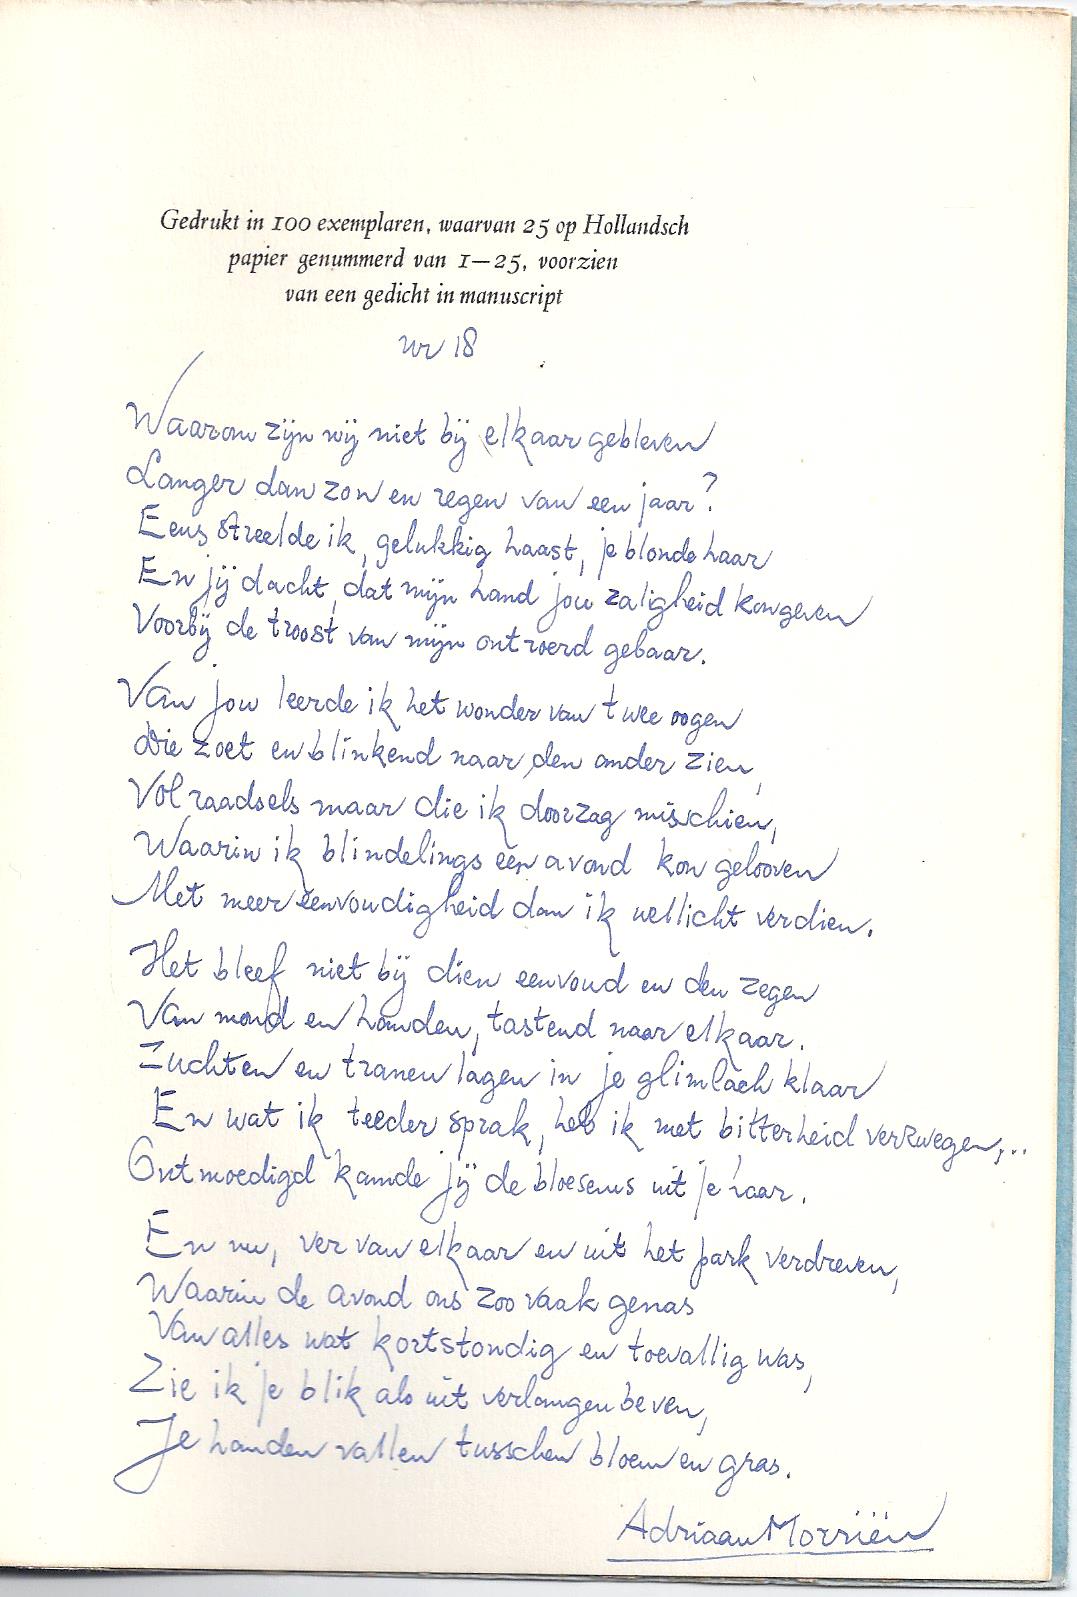 Gedrukt in 100 exemplaren, waarvan 25 op Hollandsch
papier genummerd van 1—25, voorzien
van een gedicht in manuscript
nr 18
Waarom zijn wij niet bij elkaar gebleven
Langer dan zon en regen van een jaar?
Eens streelde ik, gelukkig haast, je blonde haar
En jij dacht, dat mijn hand jou zaligheid kon geven
Voorbij de troost van mijn ontroerd gebaar.
Van jou leerde ik het wonder van twee oogen
Die zoet en blinkend naar den ander zien,
Vol raadsels maar die ik doorzag misschien,
Waarin ik blindelings één avond kon gelooven
Met meer eenvoudigheid dan ik wellicht verdien.
Het bleef niet bij dien eenvoud en den zegen
Van mond en handen, tastend naar elkaar.
Zuchten en tranen lagen in je glimlach klaar
En wat ik teeder sprak, heb ik met bitterheid verzwegen,...
Ontmoedigd kamde jij de bloesems uit je haar.
En nu, ver van elkaar en uit het park verdreven,
Waarin de avond ons zoo vaak genas
Van alles wat kortstondig en toevallig was,
Zie ik je blik als uit verlangen beven,
Je handen vallen tusschen bloem en gras.
Adriaan Morriën